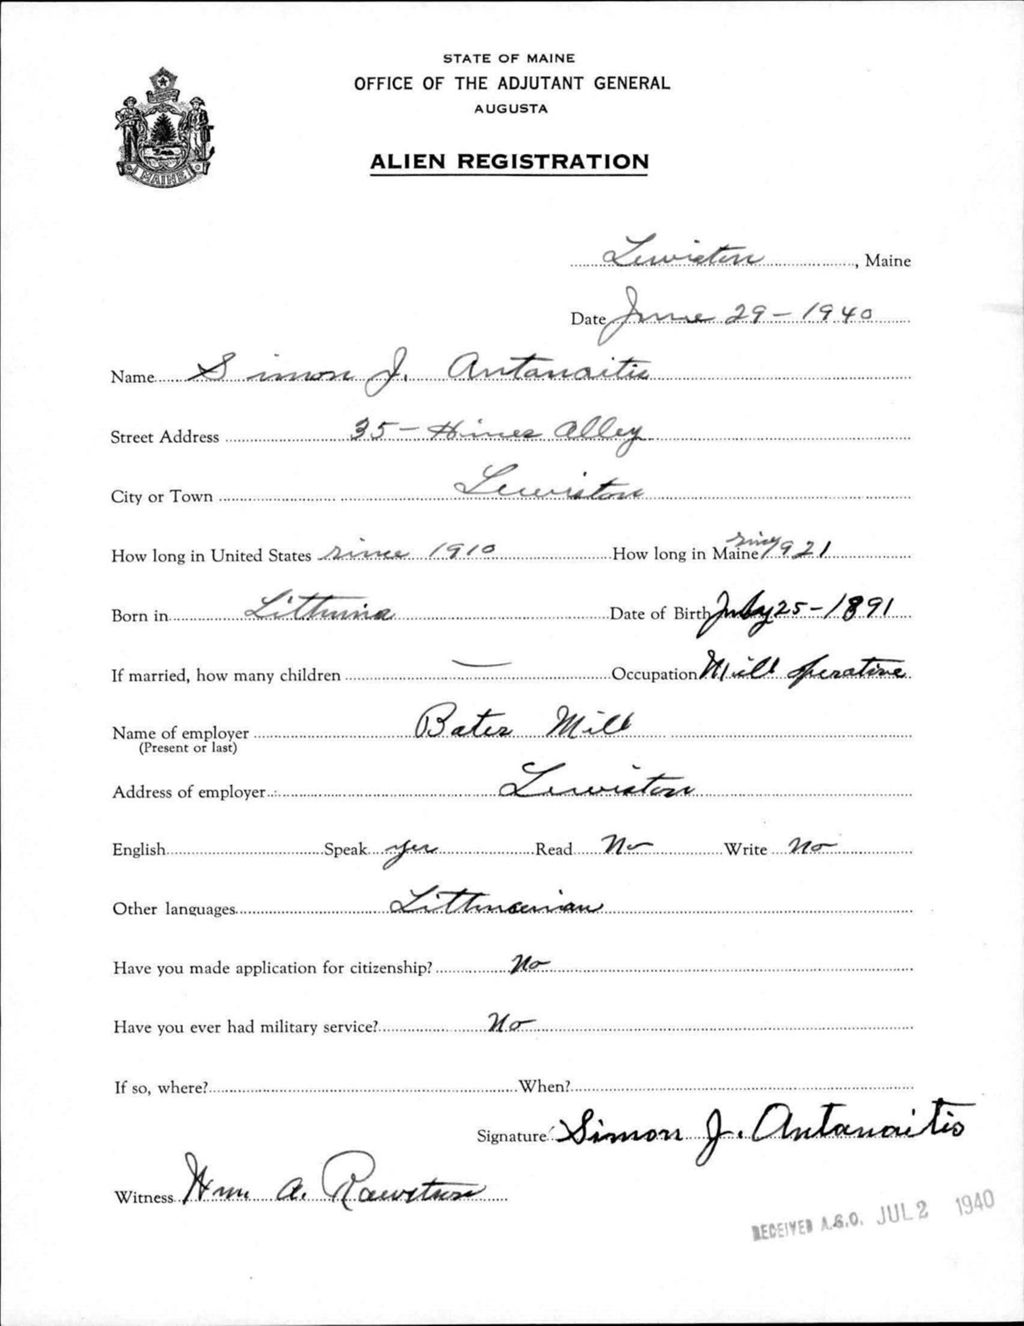 STATE OF MAINE
OFFICE OF THE ADJUTANT GENERAL
AUGUSTA
MAINE
ALIEN REGISTRATION
Lewiston, Maine
Date June 29 - 1940
Name Simon J. Antanaitis
Street Address 35 - Hines Alley
City or Town Lewiston
How long in United States since 1910 How long in Maine since 1921
Born in Date of Birth July 25 - 1891
If married, how many children — Occupation Mill operative
Name of employer Bates Mill
(Present or last)
Address of employer Lewiston
English Speak yes Read No Write No
Other languages
Have you made application for citizenship? No
Have you ever had military service? No
If so, where? When?
Signature Simon J. Antanaitis
Witness Wm. A.
RECEIVED A.G.O. JUL 2 1940